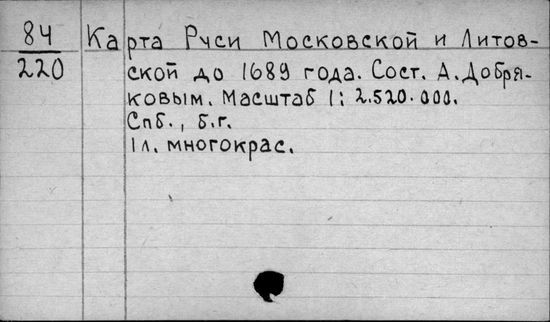 84 Карта Руси Московской и Литов-
220 ской до 1689 года. Сост. А. Добря-
ковым. Масштаб 1: 2.520.000.
Спб., б.г.
1 л. многокрас.